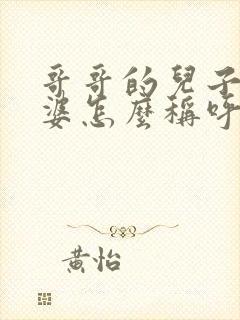 哥哥的兒子
婆怎麼稱呼
黃怡